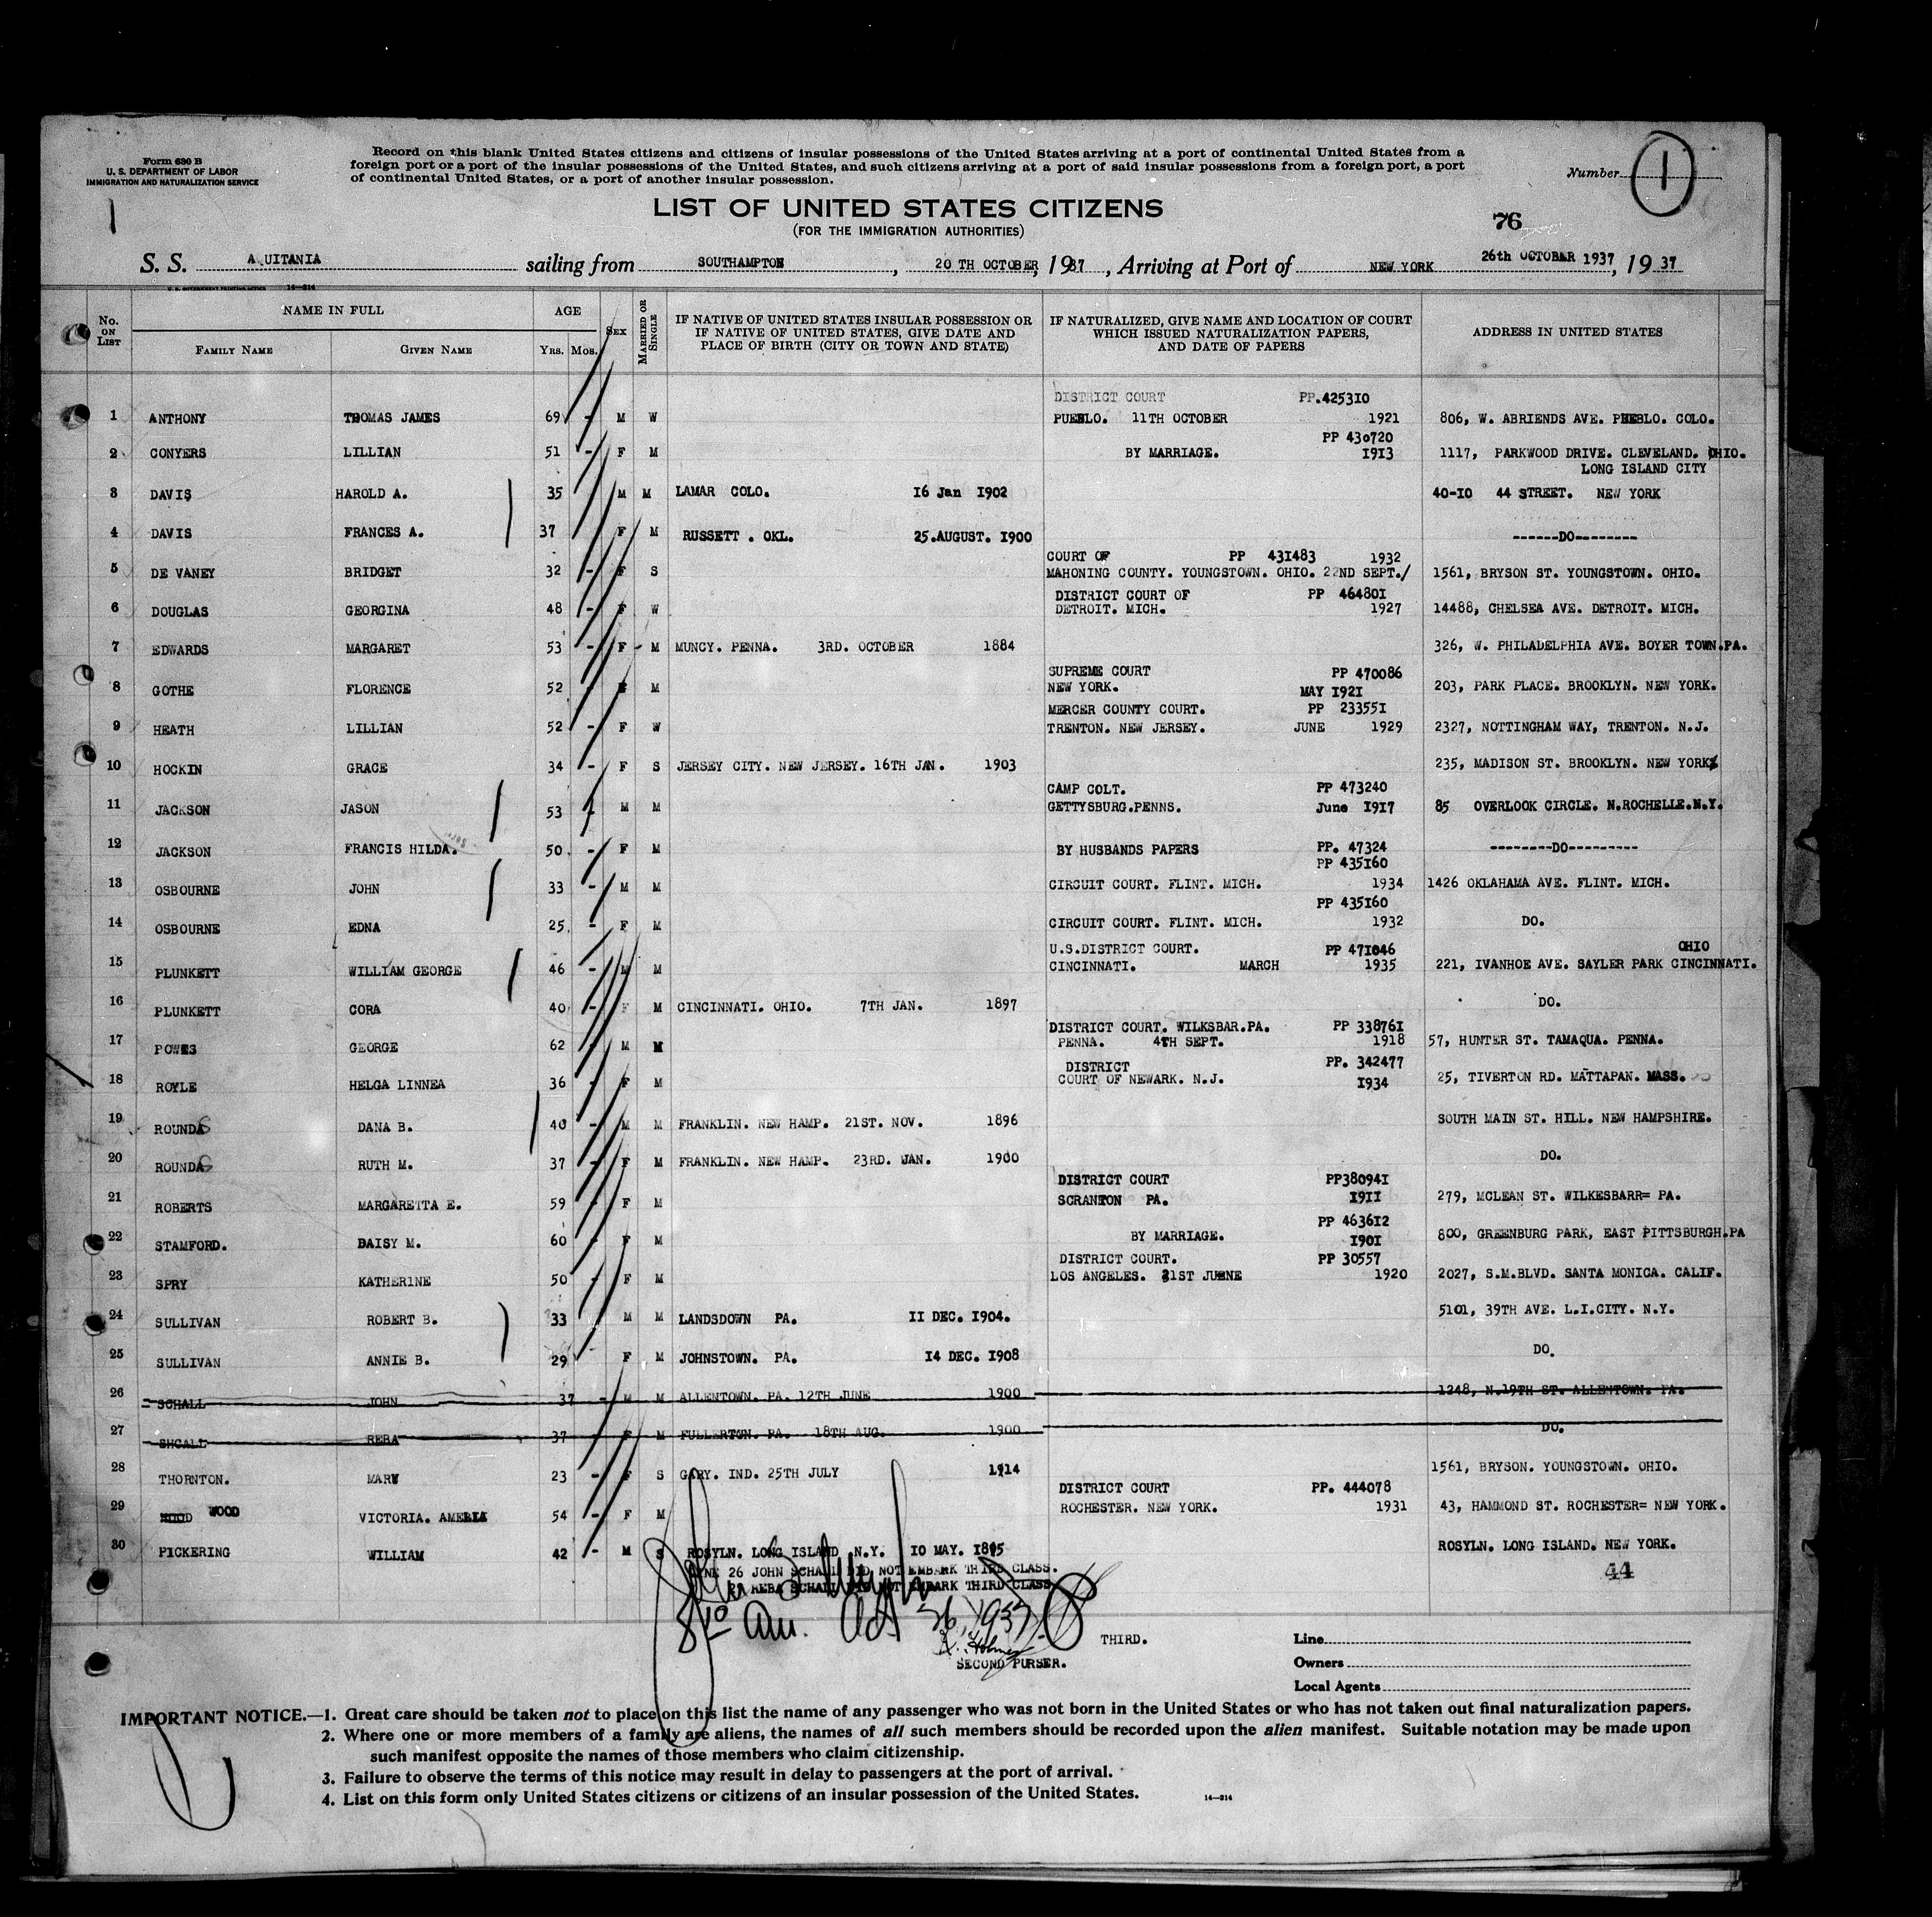 Form 630 B
U. S. DEPARTMENT OF LABOR
IMMIGRATION AND NATURALIZATION SERVICE
Record on this blank United States citizens and citizens of insular possessions of the United States arriving at a port of continental United States from a
foreign port or a port of the insular possessions of the United States, and such citizens arriving at a port of said insular possessions from a foreign port, a port
of continental United States, or a port of another insular possession.
Number 1
1
LIST OF UNITED STATES CITIZENS
(FOR THE IMMIGRATION AUTHORITIES)
76
S. S. A UITANIA sailing from SOUTHAMPTON, 20 TH OCTOBER, 1937, Arriving at Port of NEW YORK 26th OCTOBER 1937, 19 37
U. S. GOVERNMENT PRINTING OFFICE 14—214
No. ON LIST NAME IN FULL FAMILY NAME GIVEN NAME AGE YRS. MOS. SEX MARRIED OR SINGLE IF NATIVE OF UNITED STATES INSULAR POSSESSION OR IF NATIVE OF UNITED STATES, GIVE DATE AND PLACE OF BIRTH (CITY OR TOWN AND STATE) IF NATURALIZED, GIVE NAME AND LOCATION OF COURT WHICH ISSUED NATURALIZATION PAPERS, AND DATE OF PAPERS ADDRESS IN UNITED STATES
DISTRICT COURT PP.425310
1 ANTHONY THOMAS JAMES 69 - M W PUEBLO. 11TH OCTOBER 1921 806, W. ABRIENDS AVE. PUEBLO. COLO.
PP 430720
2 CONYERS LILLIAN 51 - F M BY MARRIAGE. 1913 1117, PARKWOOD DRIVE. CLEVELAND. OHIO.
LONG ISLAND CITY
3 DAVIS HAROLD A. 35 M M LAMAR COLO. 16 Jan 1902 40-10 44 STREET. NEW YORK
4 DAVIS FRANCES A. 37 F M RUSSETT . OKL. 25.AUGUST. 1900 ------DO--------
COURT OF PP 431483 1932
5 DE VANEY BRIDGET 32 - F S MAHONING COUNTY. YOUNGSTOWN. OHIO. 22ND SEPT./ 1561, BRYSON ST. YOUNGSTOWN. OHIO.
DISTRICT COURT OF PP 464801
6 DOUGLAS GEORGINA 48 - F W DETROIT. MICH. 1927 14488, CHELSEA AVE. DETROIT. MICH.
7 EDWARDS MARGARET 53 - F - M MUNCY. PENNA. 3RD. OCTOBER 1884 326, W. PHILADELPHIA AVE. BOYER TOWN.PA.
SUPREME COURT PP 470086
8 GOTHE FLORENCE 52 - F M NEW YORK. MAY 1921 203, PARK PLACE. BROOKLYN. NEW YORK.
MERCER COUNTY COURT. PP 233551
9 HEATH LILLIAN 52 - F W TRENTON. NEW JERSEY. JUNE 1929 2327, NOTTINGHAM WAY, TRENTON. N.J.
10 HOCKIN GRACE 34 - F S JERSEY CITY. NEW JERSEY. 16TH JAN. 1903 235, MADISON ST. BROOKLYN. NEW YORK
CAMP COLT. PP 473240
11 JACKSON JASON 53 - M M GETTYSBURG.PENNS. June 1917 85 OVERLOOK CIRCLE. N.ROCHELLE.N.Y.
12 JACKSON FRANCIS HILDA. 50. - F M BY HUSBANDS PAPERS PP. 47324 --------DO---------
PP 435160
13 OSBOURNE JOHN 33 - M M CIRCUIT COURT. FLINT. MICH. 1934 1426 OKLAHOMA AVE. FLINT. MICH.
PP 435160
14 OSBOURNE EDNA 25. - F M CIRCUIT COURT. FLINT. MICH. 1932 DO.
U.S.DISTRICT COURT. PP 471046 OHIO
15 PLUNKETT WILLIAM GEORGE 46 - M M CINCINNATI. MARCH 1935 221, IVANHOE AVE. SAYLER PARK CINCINNATI.
16 PLUNKETT CORA 40 - F M CINCINNATI. OHIO. 7TH JAN. 1897 DO.
DISTRICT COURT. WILKSBAR.PA. PP 338761
17 POWES GEORGE 62 - M M PENNA. 4TH SEPT. 1918 57, HUNTER ST. TAMAQUA. PENNA.
DISTRICT PP. 342477
18 ROYLE HELGA LINNEA 36 - F M COURT OF NEWARK. N.J. 1934 25, TIVERTON RD. MATTAPAN. MASS.
19 ROUNDS DANA B. 40 - M M FRANKLIN. NEW HAMP. 21ST. NOV. 1896 SOUTH MAIN ST. HILL. NEW HAMPSHIRE.
20 ROUNDS RUTH M. 37 - F M FRANKLIN. NEW HAMP. 23RD. JAN. 1900 DO.
DISTRICT COURT PP380941
21 ROBERTS MARGARETTA E. 59 - F M SCRANTON PA. 1911 279, MCLEAN ST. WILKESBARR= PA.
PP 463612
22 STAMFORD. DAISY M. 60 - F M BY MARRIAGE. 1901 800, GREENBURG PARK, EAST PITTSBURGH.PA
DISTRICT COURT. PP 30557
23 SPRY KATHERINE 50 - F M LOS ANGELES. 21ST JUNE 1920 2027, S.M.BLVD. SANTA MONICA. CALIF.
24 SULLIVAN ROBERT B. 33 M M LANDSDOWN PA. 11 DEC. 1904. 5101, 39TH AVE. L.I.CITY. N.Y.
25 SULLIVAN ANNIE B. 29 F M JOHNSTOWN. PA. 14 DEC. 1908 DO.
26 SCHALL JOHN 37 - M M ALLENTOWN. PA. 12TH JUNE 1900 1248, N.19TH ST. ALLENTOWN. PA.
27 SHCALL REBA 37 - F M FULLERTON. PA. 18TH AUG. 1900 DO.
28 THORNTON. MARY 23 - F S GARY. IND. 25TH JULY 1914 1561, BRYSON. YOUNGSTOWN. OHIO.
DISTRICT COURT PP. 444078
29 WOOD VICTORIA. AMELIA 54 - F M ROCHESTER. NEW YORK. 1931 43, HAMMOND ST. ROCHESTER= NEW YORK.
30 PICKERING WILLIAM 42 - M S ROSYLN. LONG ISLAND N.Y. 10 MAY. 1895 ROSYLN. LONG ISLAND. NEW YORK.
LINE 26 JOHN SCHALL DID NOT EMBARK THIRD CLASS.
27 REBA SCHALL DID NOT EMBARK THIRD CLASS
44
8 10 am. Oct 26, 1937
Holmes
THIRD.
SECOND PURSER.
Line
Owners
Local Agents
IMPORTANT NOTICE.—1. Great care should be taken not to place on this list the name of any passenger who was not born in the United States or who has not taken out final naturalization papers.
2. Where one or more members of a family are aliens, the names of all such members should be recorded upon the alien manifest. Suitable notation may be made upon
such manifest opposite the names of those members who claim citizenship.
3. Failure to observe the terms of this notice may result in delay to passengers at the port of arrival.
4. List on this form only United States citizens or citizens of an insular possession of the United States.
14—214